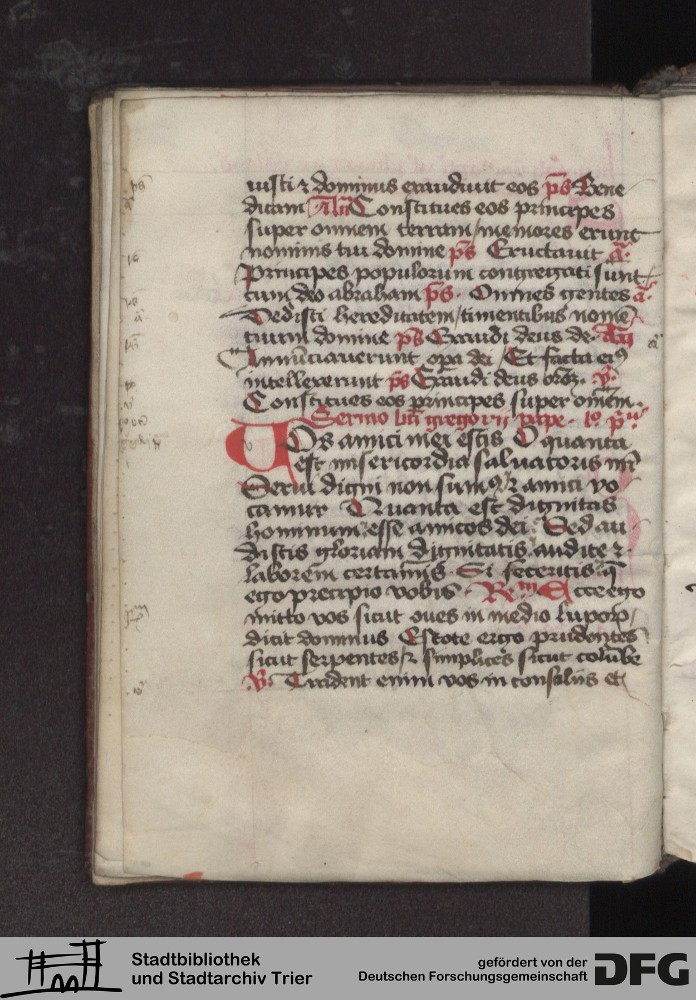 iusti ⁊ dominus exaudiuit eos p̄s Bene
dicam Añ Constitues eos principes
super omnem terram / memores erunt
nominis tui domine p̄s Eructauit a̅
Principes populorum congregati sunt
cum deo abraham p̄s. Omnes gentes a̅
Dedisti hereditatem / timentibus nome̅
tuum domine p̄s Exaudi deus de. Añ
Annu̅ciauerunt opa dei / Et facta eiꝰ
intellexerunt p̄s Exaudi deus oro̅. v̅
Constitues eos principes super om̅em.
Sermo bti̅ gregorii pape. lo̅ p̄ᵃ
Vos amici mei estis O quanta
est misericordia saluatoris nr̅i
Serui digni non sumꝰ ⁊ amici vo
camur Quanta est dignitas
hominum esse amicos dei. Sed au
distis gloriam dignitatis audite ⁊
laborem certaminis. Si feceritis q̅
ego precipio vobis. Re Ecce ego
mitto vos sicut oues in medio lupoꝝ /
dicit dominus Estote ergo prudentes
sicut serpentes / ⁊ simplices sicut colu̅be
V. Tradent enim vos in consiliis et
Stadtbibliothek
und Stadtarchiv Trier
gefördert von der
Deutschen Forschungsgemeinschaft
DFG